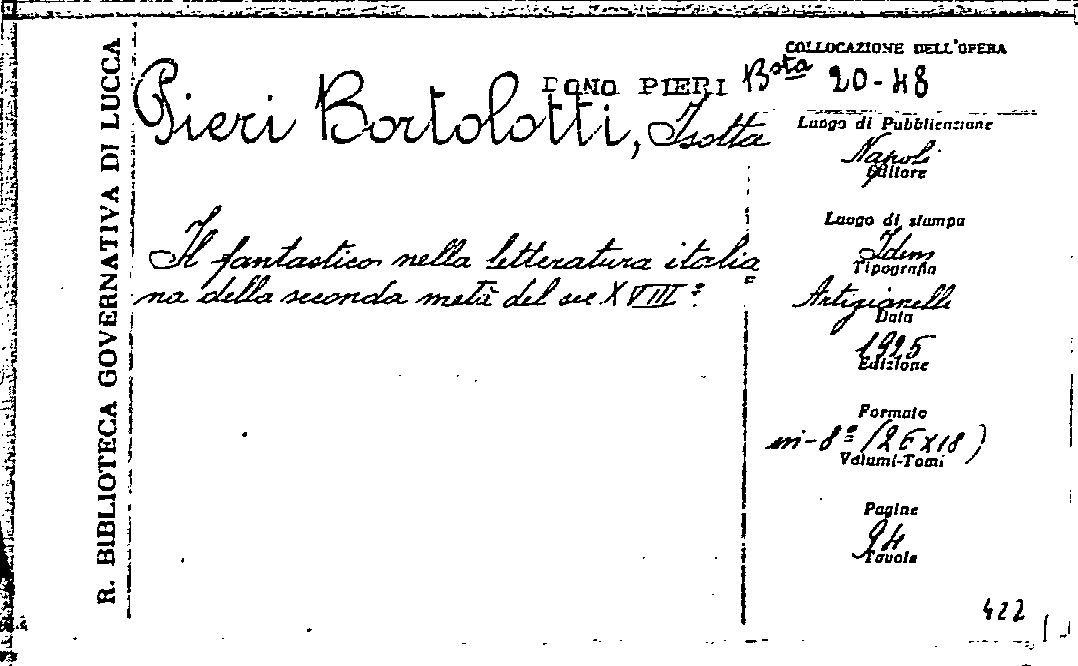 R. BIBLIOTECA GOVERNATIVA DI LUCCA
COLLOCAZIONE DELL'OPERA
DONO PIERI Bsta 20-48
Pieri Bortolotti, Isotta
Il fantastico nella letteratura italia
na della seconda metà del sec XVIIIº.
Luogo di Pubblicazione
Napoli
Editore
Luogo di stampa
Idem
Tipografia
Artigianelli
Data
1925
Edizione
Formato
in-8º (26x18)
Volumi-Tomi
Pagine
94
Tavole
422